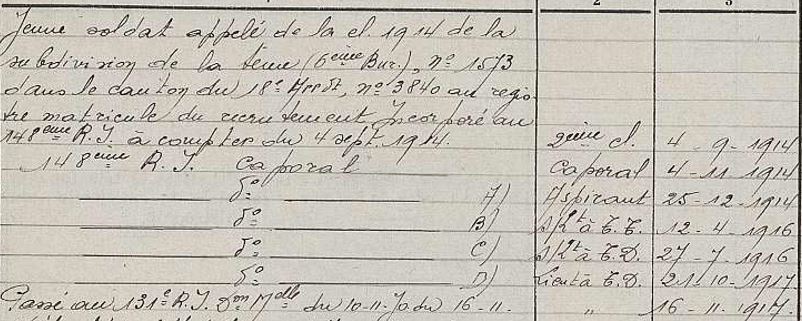 2 3
Jeune soldat appelé de la cl. 1914 de la
subdivision de la Seine (6ème Bur.), nº 1573
dans le canton du 18e Arrdt, nº 3840 au regis-
tre matricule du recrutement. Incorporé au
148ème R.I. à compter du 4 sept. 1914. 2ème cl. 4 - 9 - 1914
148ème R.I. Caporal Caporal 4 - 11 - 1914
dº A) Aspirant 25 - 12 - 1914
dº B) S/Lt à T.T. 12 - 4 - 1916
dº C) S/Lt à T.D. 27 - 7 - 1916
dº D) Lieut à T.D. 21 - 10 - 1917
Passé au 131e R.I. Don Mlle du 10-11-Jo du 16-11. " 16 - 11 - 1917.